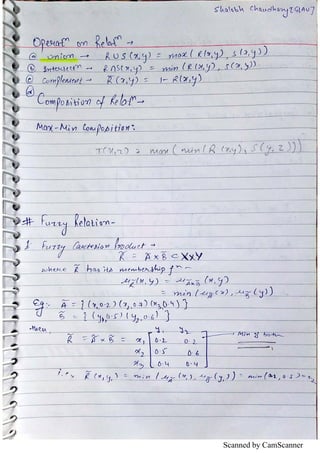 Shaikh Chaudhary [GLAU]
Operatⁿ on Relatⁿ →
(a) union → R∪S(x,y) = max(R(x,y), S(x,y))
(b) Intersectⁿ → R∩S(x,y) = min(R(x,y), S(x,y))
(c) Complement → R̄(x,y) = 1- R(x,y)
(d)
Composition of Relatⁿ →
Max-Min Composition:
T(x,z) = max(min(R(x,y), S(y,z)))
# Fuzzy Relation-
1. Fuzzy Cartesian Product →
R̃ = Ã × B̃ ⊂ X×Y
where R̃ has its membership fⁿ -
μR̃(x,y) = μÃ×B̃(x,y)
= min(μÃ(x), μB̃(y))
Eg:- Ã = {(x₁,0.2)(x₂,0.7)(x₃,0.4)}
B̃ = {(y₁,0.5)(y₂,0.6)}
then,
y₁ y₂
R̃ = Ã×B̃ = x₁ 0.2 0.2 → Min of both
x₂ 0.5 0.6
x₃ 0.4 0.4
i.e., R̃(x₁,y₁) = min(μÃ(x₁), μB̃(y₁)) = min(0.2, 0.5) = 0.2
Scanned by CamScanner